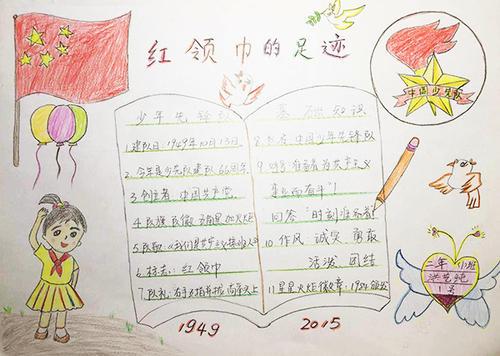 红领巾的足迹
中国少先队
少年先锋队
1.建队日:1949年10月13日
2.今年是少先队建队66周年
3.创立者 中国共产党
4.队旗 队徽 五角星加火炬
5.队歌:《我们是共产主义接班人》
6.标志:红领巾
7.队礼:右手五指并拢高举头上
基础知识
8.全名 中国少年先锋队
9.呼号 准备着为共产主义
事业而奋斗!
回答"时刻准备着"
10.作风 诚实 勇敢
活泼 团结
11.星星火炬徽章:
1949
2015
二年
1号